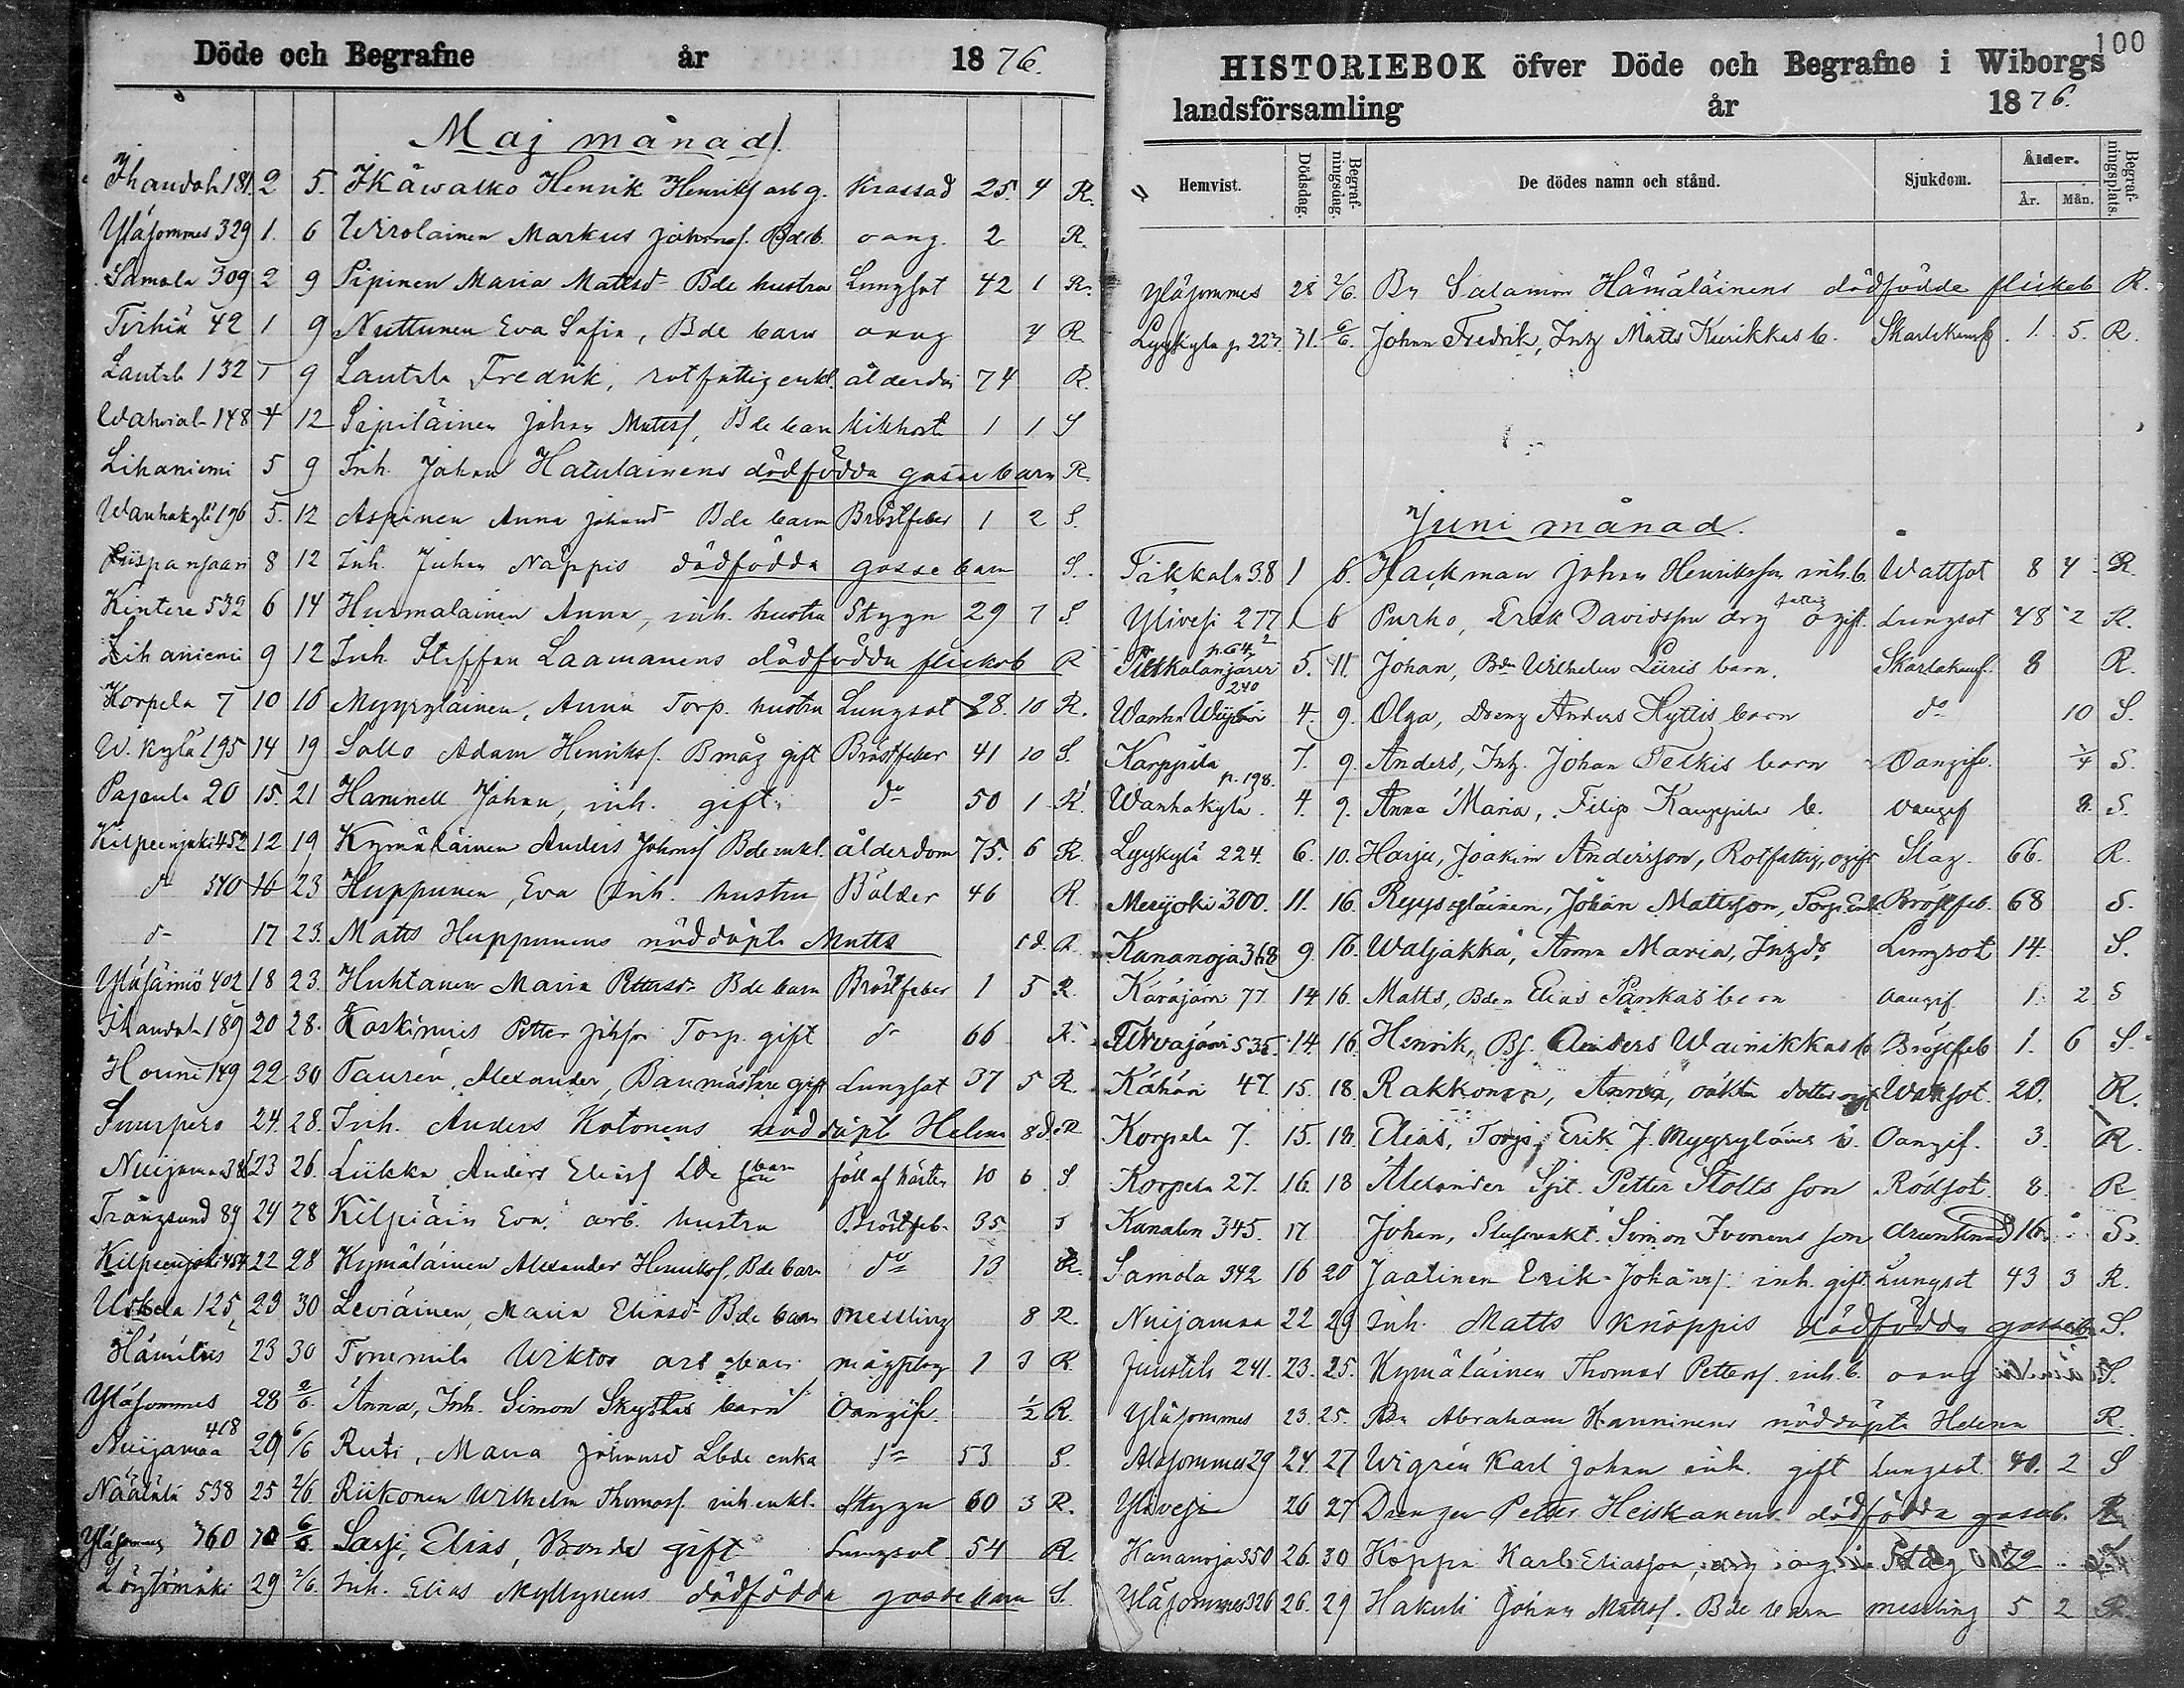 Döde och Begrafne år 1876.
Maj månad.
Ihandala 181. 2 5. Ikäwalko Henrik Henriksf arb g. Krassad 25. 4 R.
Yläsommes 329 1. 6 Wirolainen Markus Johansf. Bdeb. oang. 2 R.
Samola 309 2 9 Pipinen Maria Mattsd Bde hustru Lungsot 42 1 R.
Tirhiä 42 1 9 Nuttunen Eva Sofia, Bde barn oang 4 R
Lautala 132 9 Lautala Fredrik, rotfattig enkl. ålderdom 74 R.
Wahviala 148 4 12 Sipiläinen Johan Mattsf, Bde barn kikhost 1 1 S
Lihaniemi 5 9 Inh. Johan Hatulainens dödfödda gossebarn R.
Wanhakylä 196 5. 12 Aspinen Anna Johansd Bde barn Bröstfeber 1 2 S.
8 12 Inh. Juhan Näppis dödfödda gosse barn S.
Kintere 532 6 14 Hurmalainen Anna, inh. hustru Stygn 29 7 S
Lihaniemi 9 12 Inh. Staffan Laamanens dödfödda flickeb R
Korpela 7 10 16 Myyryläinen, Anna Torp. hustru Lungsot 28. 10 R.
W. kylä 195 14 19 Salko Adam Henriksf. Bmåg gift Bröstfeber 41 10 S.
Papula 20 15. 21 Haminell Johan, inh. gift. do 50 1 R.
Kilpeenjoki 452 12 19 Kymäläinen Anders Johansf Bde enkl. ålderdom 75. 6 R.
do 540 16 23 Huppunen, Eva Inh. hustru Bölder 46 R.
do 17 23. Matts Huppunens nöddöpte Matts 1 d. R.
Yläsäiniö 402 18 23. Huhtanen Maria Pettersd. Bde barn Bröstfeber 1 5 R.
Ihandala 189 20 28. Koskimies Petter Johsson Torp. gift do 66 R.
Houni 149 22 30 Taurén, Alexander, Banmästare gift Lungsot 37 5 R.
Suurpero 24. 28. Inh. Anders Kotonens nöddöpt Helena 8 d. R
Nuijamaa 23 26. Liikka Anders Eliasf Lbde barn föll af hästen 10 6 S
Trångsund 89 24 28 Kilpiäin Eva, arb. hustru Bröstfeb. 35 S
Kilpeenjoki 454 22 28 Kymäläinen Alexander Henriksf, Bde barn do 13 R.
Uskela 125, 23 30 Leviäinen, Maria Eliasd. Bde barn messling 8 R.
23 30 Tommila Wiktor arb. barn 1 3 R.
Yläsommes 28 2/6. Anna, Inh. Simon Skyttäs barn Oangifv. 1/2 R.
Nuijamaa 418 29 6/6 Ruti, Maria Johansd Lbde enka do 53 S.
Näätälä 538 25 2/6. Riikonen Wilhelm Thomasf. inh. enkl. Stygn 60 3 R.
Yläsommes 760 6/6. Sarji, Elias, Bonde gift Lungsot 54 R.
Löytömäki 29 2/6. Inh. Elias Myllynens dödfödda gosse barn S.
100
HISTORIEBOK öfver Döde och Begrafne i Wiborgs
landsförsamling år 1876.
Hemvist. Dödsdag. Begrafningsdag. De dödes namn och stånd. Sjukdom. Ålder. År. Mån. Begrafningsplats.
Yläsommes 28 2/6. Bn Salamon Hämäläinens dödfödde flickeb R.
Lyykylä p. 227 31. 6/6. Johan Fredrik, Inh Matts Kurikkas b. Skarlakansf. 1. 5. R.
Juni månad.
Tikkala 38 1 6. Hackman Johan Henriksson inh. b. Wattsot 8 4 R
Ylivesi 277 1 6 Purho, Erik Davidsson drg fattig ogift. Lungsot 48 2 R.
5. 11. Johan, Bdn Wilhelm Liiris barn. Skarlakansf. 8 R.
240 4. 9. Olga, Dreng Anders Hyttis barn do 10 S.
Karppila 7. 9. Anders, Inh. Johan Telkis barn Oangifv. 1/4 S.
p. 198.
Wanhakylä. 4. 9. Anna Maria, Filip Kauppila b. oangif 8. S.
Lyykylä 224. 6. 10. Harju, Joakim Andersson, Rotfattig, ogift Slag. 66. R.
Merijoki 300. 11. 16. Johan Mattsson, Torp. Enkl. Bröstfeb. 68 S.
Kananoja 368 9. 16. Waljakka, Anna Maria, Inh. dr. Lungsot 14. S.
Käräjäm 77 14 16. Matts, Bden Elias Pankas barn oangif. 1. 2 S
535. 14. 16. Henrik, Bs. Anders Wainikkas b. Bröstfeb 1. 6 S.
Kähäri 47. 15. 18. Rakkonen, Anna, oäkta dotter ogift Wattsot. 20. R.
Korpela 7. 15. 18. Elias, Torp. Erik J. Myyryläins b. Oangif. 3. R.
Korpela 27. 16. 18 Alexander Sjt. Petter Stolts son Rödsot. 8. R.
Kanalen 345. 17 Johan, Slussvakt. Simon Ivonens son drunknad 16. S.
Samola 342 16 20 Jaatinen Erik Johansf. inh. gift Lungsot 43 3 R.
Nuijamaa 22 29 Inh. Matts Knöppis dödfödda gosseb. S.
Juustila 241. 23. 25. Kymäläinen Thomas Pettersf. inh. b. oang S.
Yläsommes 23. 25. Bn Abraham Hanninens nöddöpta Helena R.
Alasommes 29 24. 27 Wigrén Karl Johan inh. gift Lungsot 40. 2 S
Ylivesi 26 27 Drengen Petter Heiskanens dödfödda gosseb. R.
Kananoja 350 26. 30 Koppa Karl Eliasson, Slag 72
Yläsommes 326 26. 29 Hakuli Johan Mattsf. Bde barn messling 5 2 R.